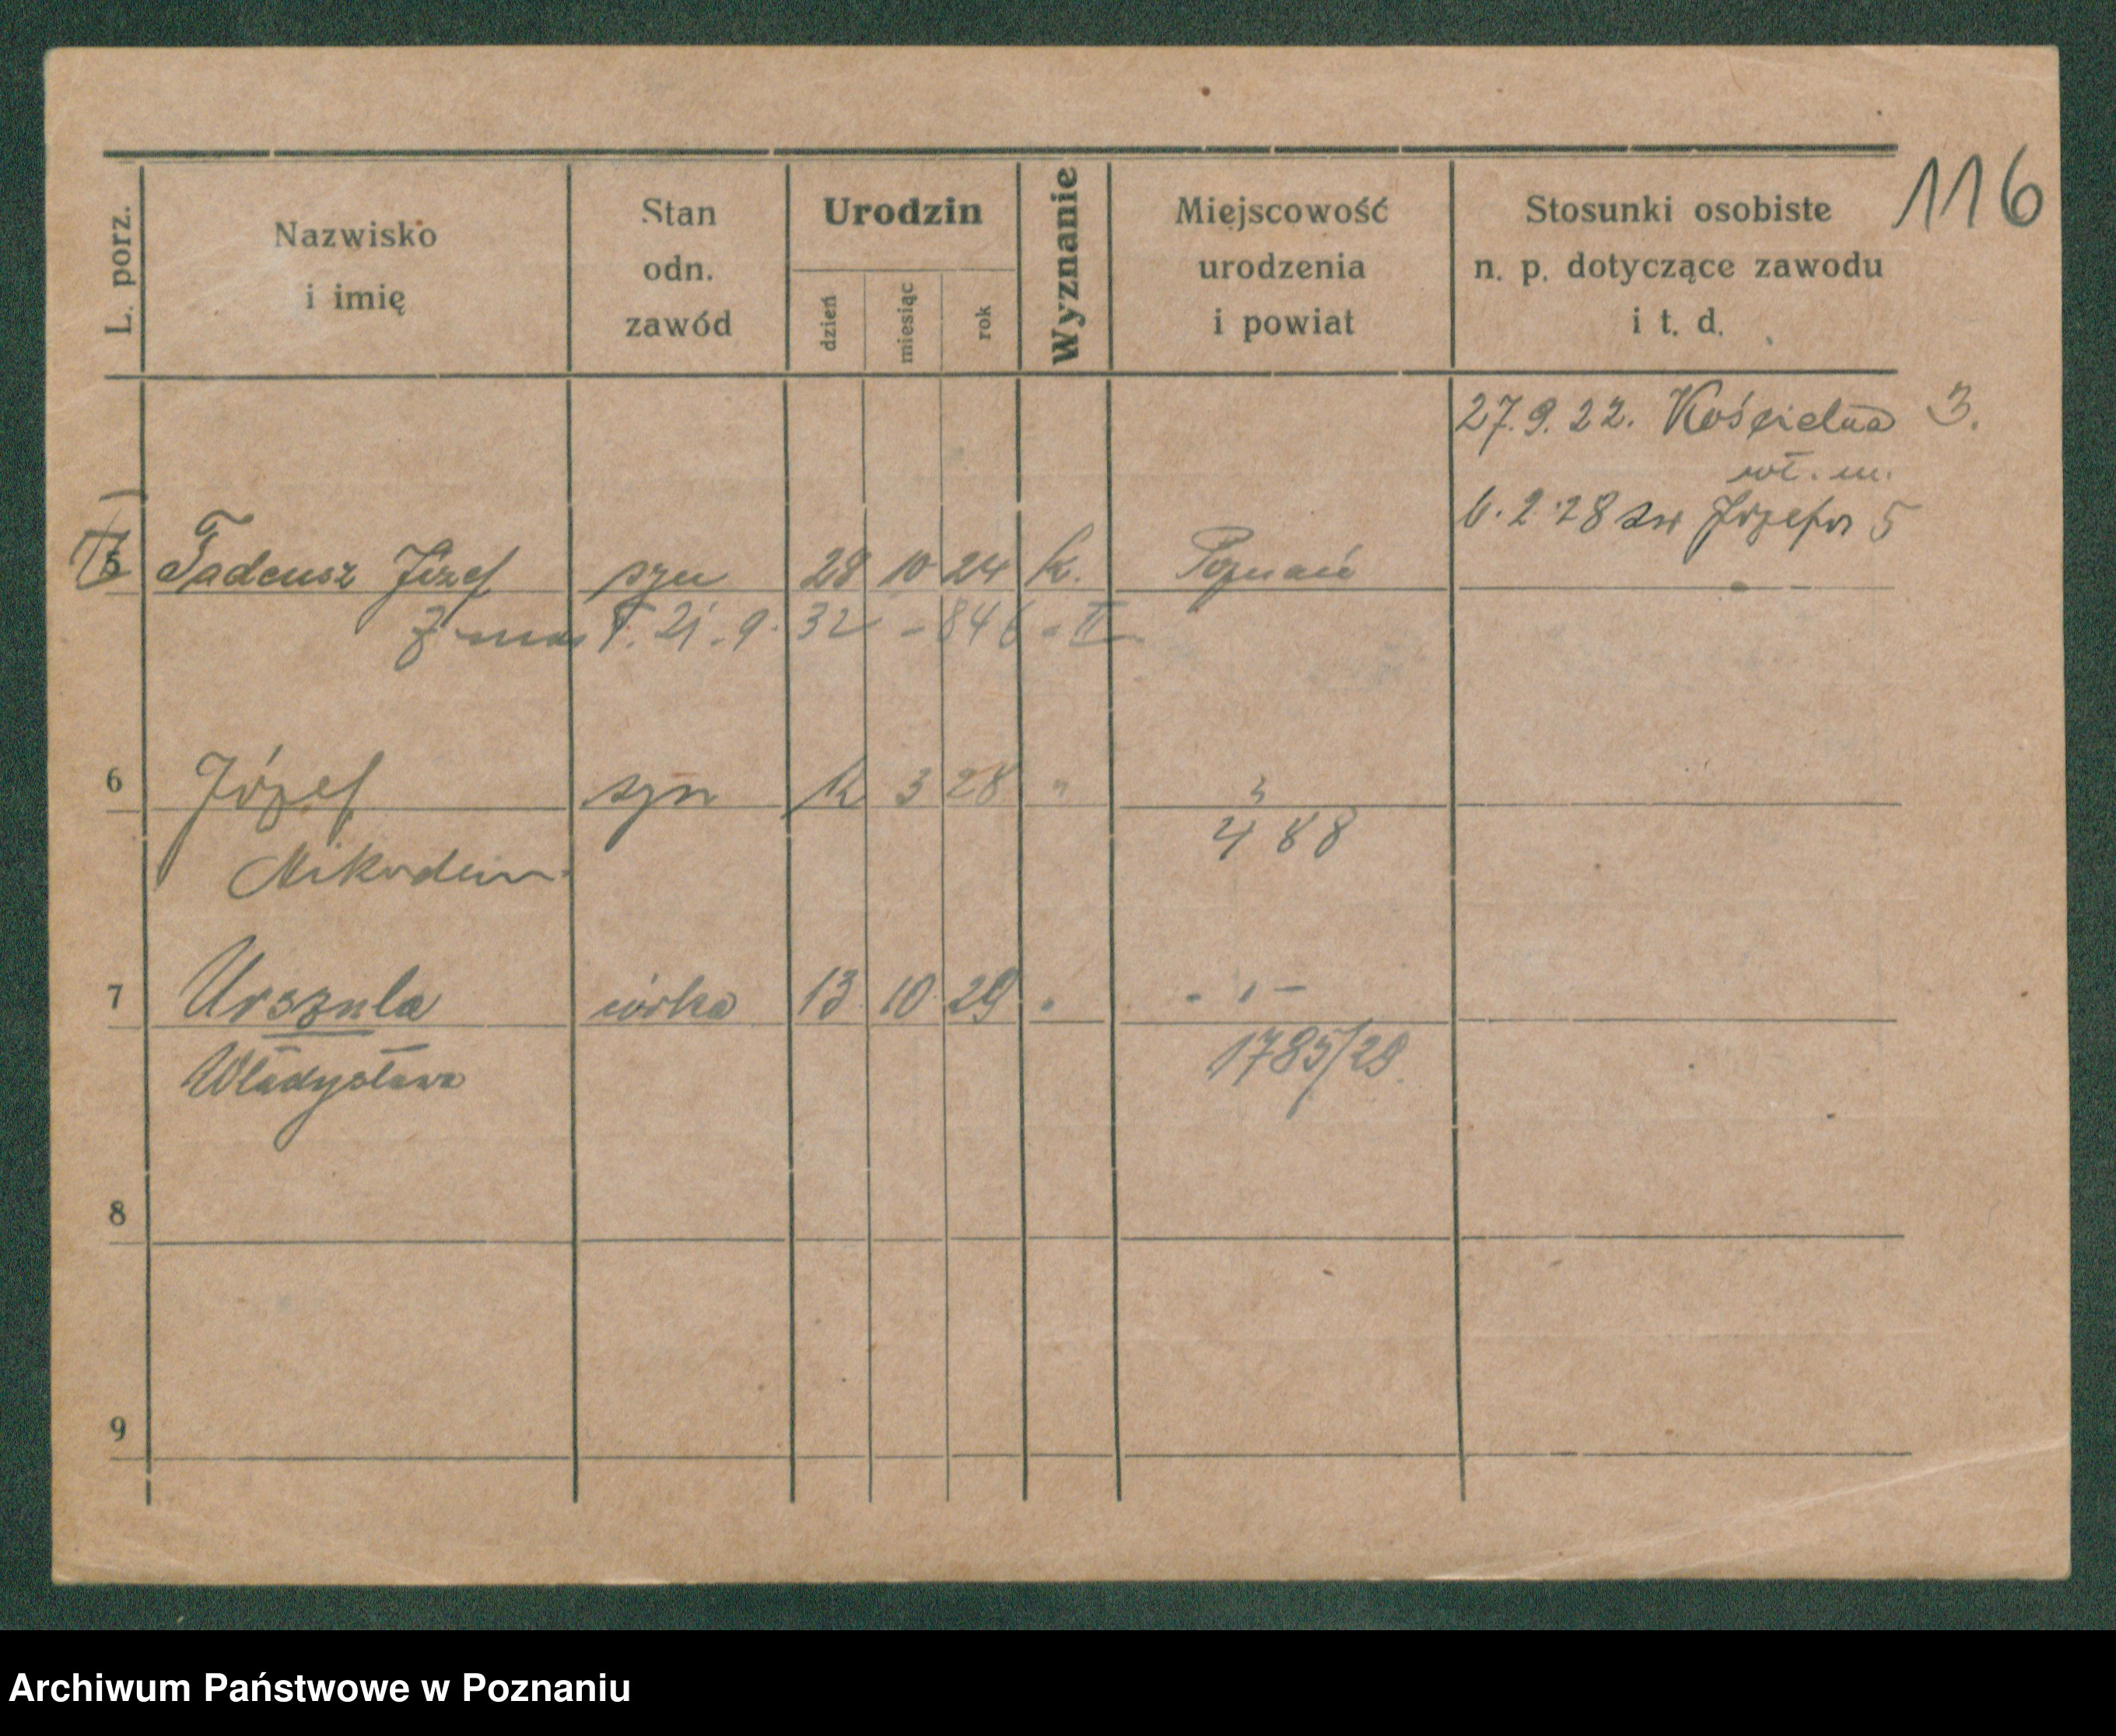 116
L. porz. Nazwisko i imię Stan odn. zawód Urodzin dzień miesiąc rok Wyznanie Miejscowość urodzenia i powiat Stosunki osobiste n. p. dotyczące zawodu i t. d.
27.9.22. Kościelna 3.
6.2.28 św Józefa 5
5 Tadeusz Józef syn 28 10 24 k. Poznań
21.9.32 - 846 - II
6 Józef syn 3 28 "
488
7 Urszula córka 13 10 29 "
Władysława 1785/29.
8
9
Archiwum Państwowe w Poznaniu